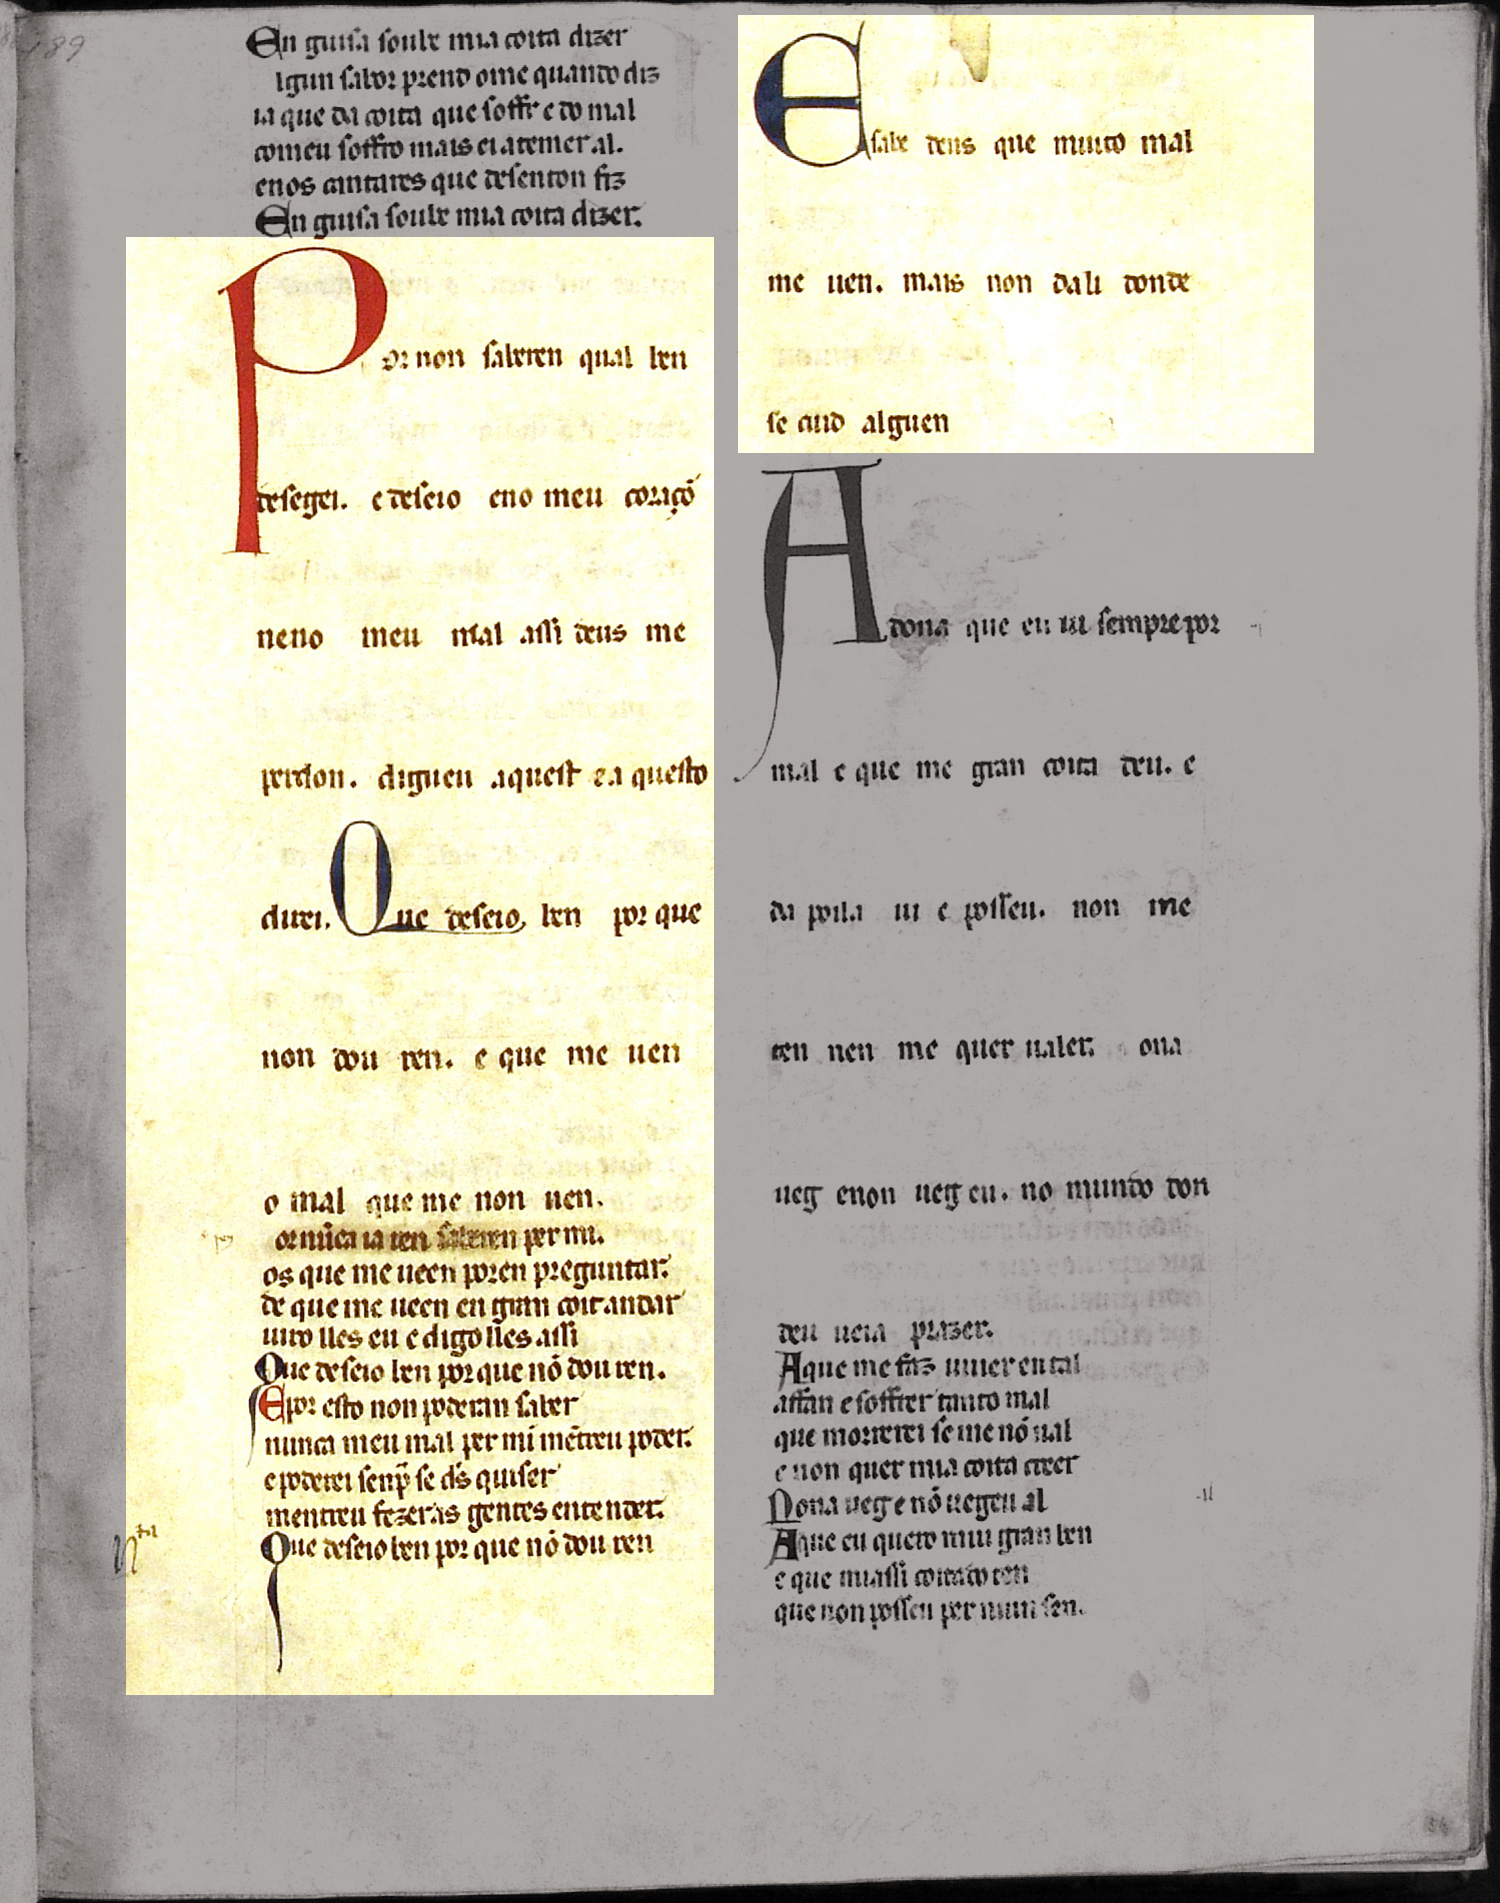 189
En guisa soube mia coita dizer
lgun sabor prend ome quando diz
ia que da coita que soffr e do mal
comeu soffro mais ei atemer al.
enos cantares que desenton fiz
En guisa soube mia coita dizer.
Por non saberen qual ben
desegei. e deseio eno meu coraçõ
neno meu mal assi deus me
perdon. digueu aquest e a questo
direi. Que deseio, ben por que
non dou ren. e que me uen
o mal que me non uen.
or nũca ia ren saberen per mi.
os que me ueen poren preguntar.
de que me ueen en gran coit andar
uiro lles eu e digo lles assi
Que deseio ben por que nõ dou ren.
E por esto non poderan saber
nunca meu mal per mi mẽtreu poder.
e poderei senp̃ se d̃s quiser
mentreu fezer as gentes entender.
Que deseio ben por que nõ dou ren
E sabe deus que muito mal
me uen. mais non dali donde
se cuid alguen
A dona que eu ui sempre por
mal e que me gran coita deu. e
da poila ui e posseu. non me
ten nen me quer ualer. ona
ueg enon ueg eu. no mundo ton
deu ueia prazer.
A que me faz uiuer en tal
affan e soffrer tanto mal
que morrerei se me nõ ual
e non quer mia coita creer
Nona ueg e nõ uegeu al
A que eu quero mui gran ben
e que massi coitado ten
que non posseu per niun sen.